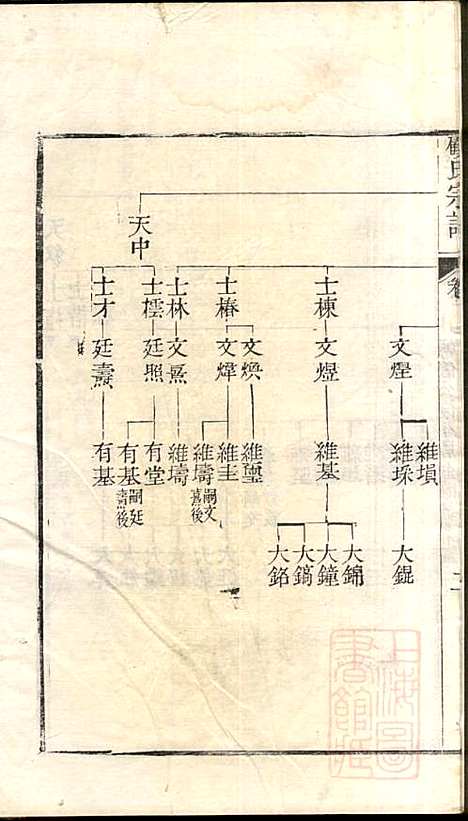 氏宗譜
卷
天中
文煋
維塤
維埰
大錕
士棟
文煜
維基
大錦
大鐘
大鎬
大銘
士椿
文煥
維璽
文煒
維圭
維壔嗣文熹後
士林
文熹
維壔
士橒
廷照
有堂
有基嗣廷燾後
士才
廷燾
有基
上海圖書館藏